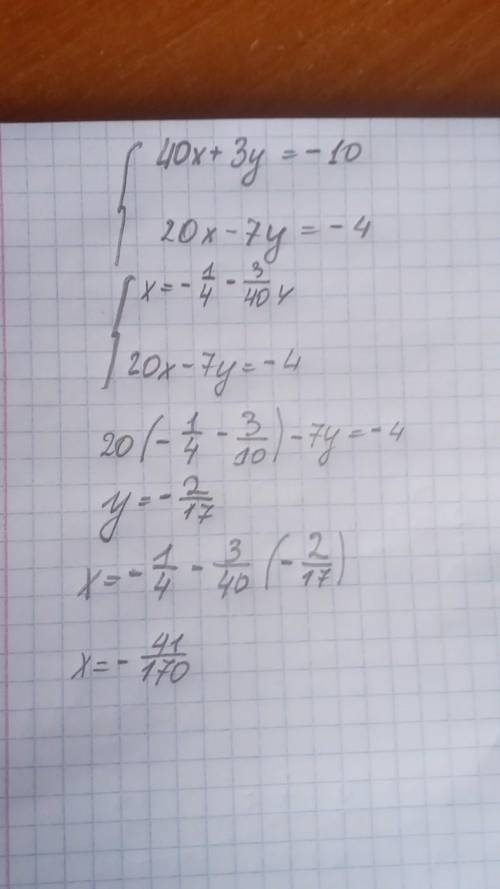 40x + 3y = -10
20x - 7y = -4
x = - 1/4 - 3/40 y
20x - 7y = -4
20 (- 1/4 - 3/10) - 7y = -4
y = - 2/17
x = - 1/4 - 3/40 (- 2/17)
x = - 41/170